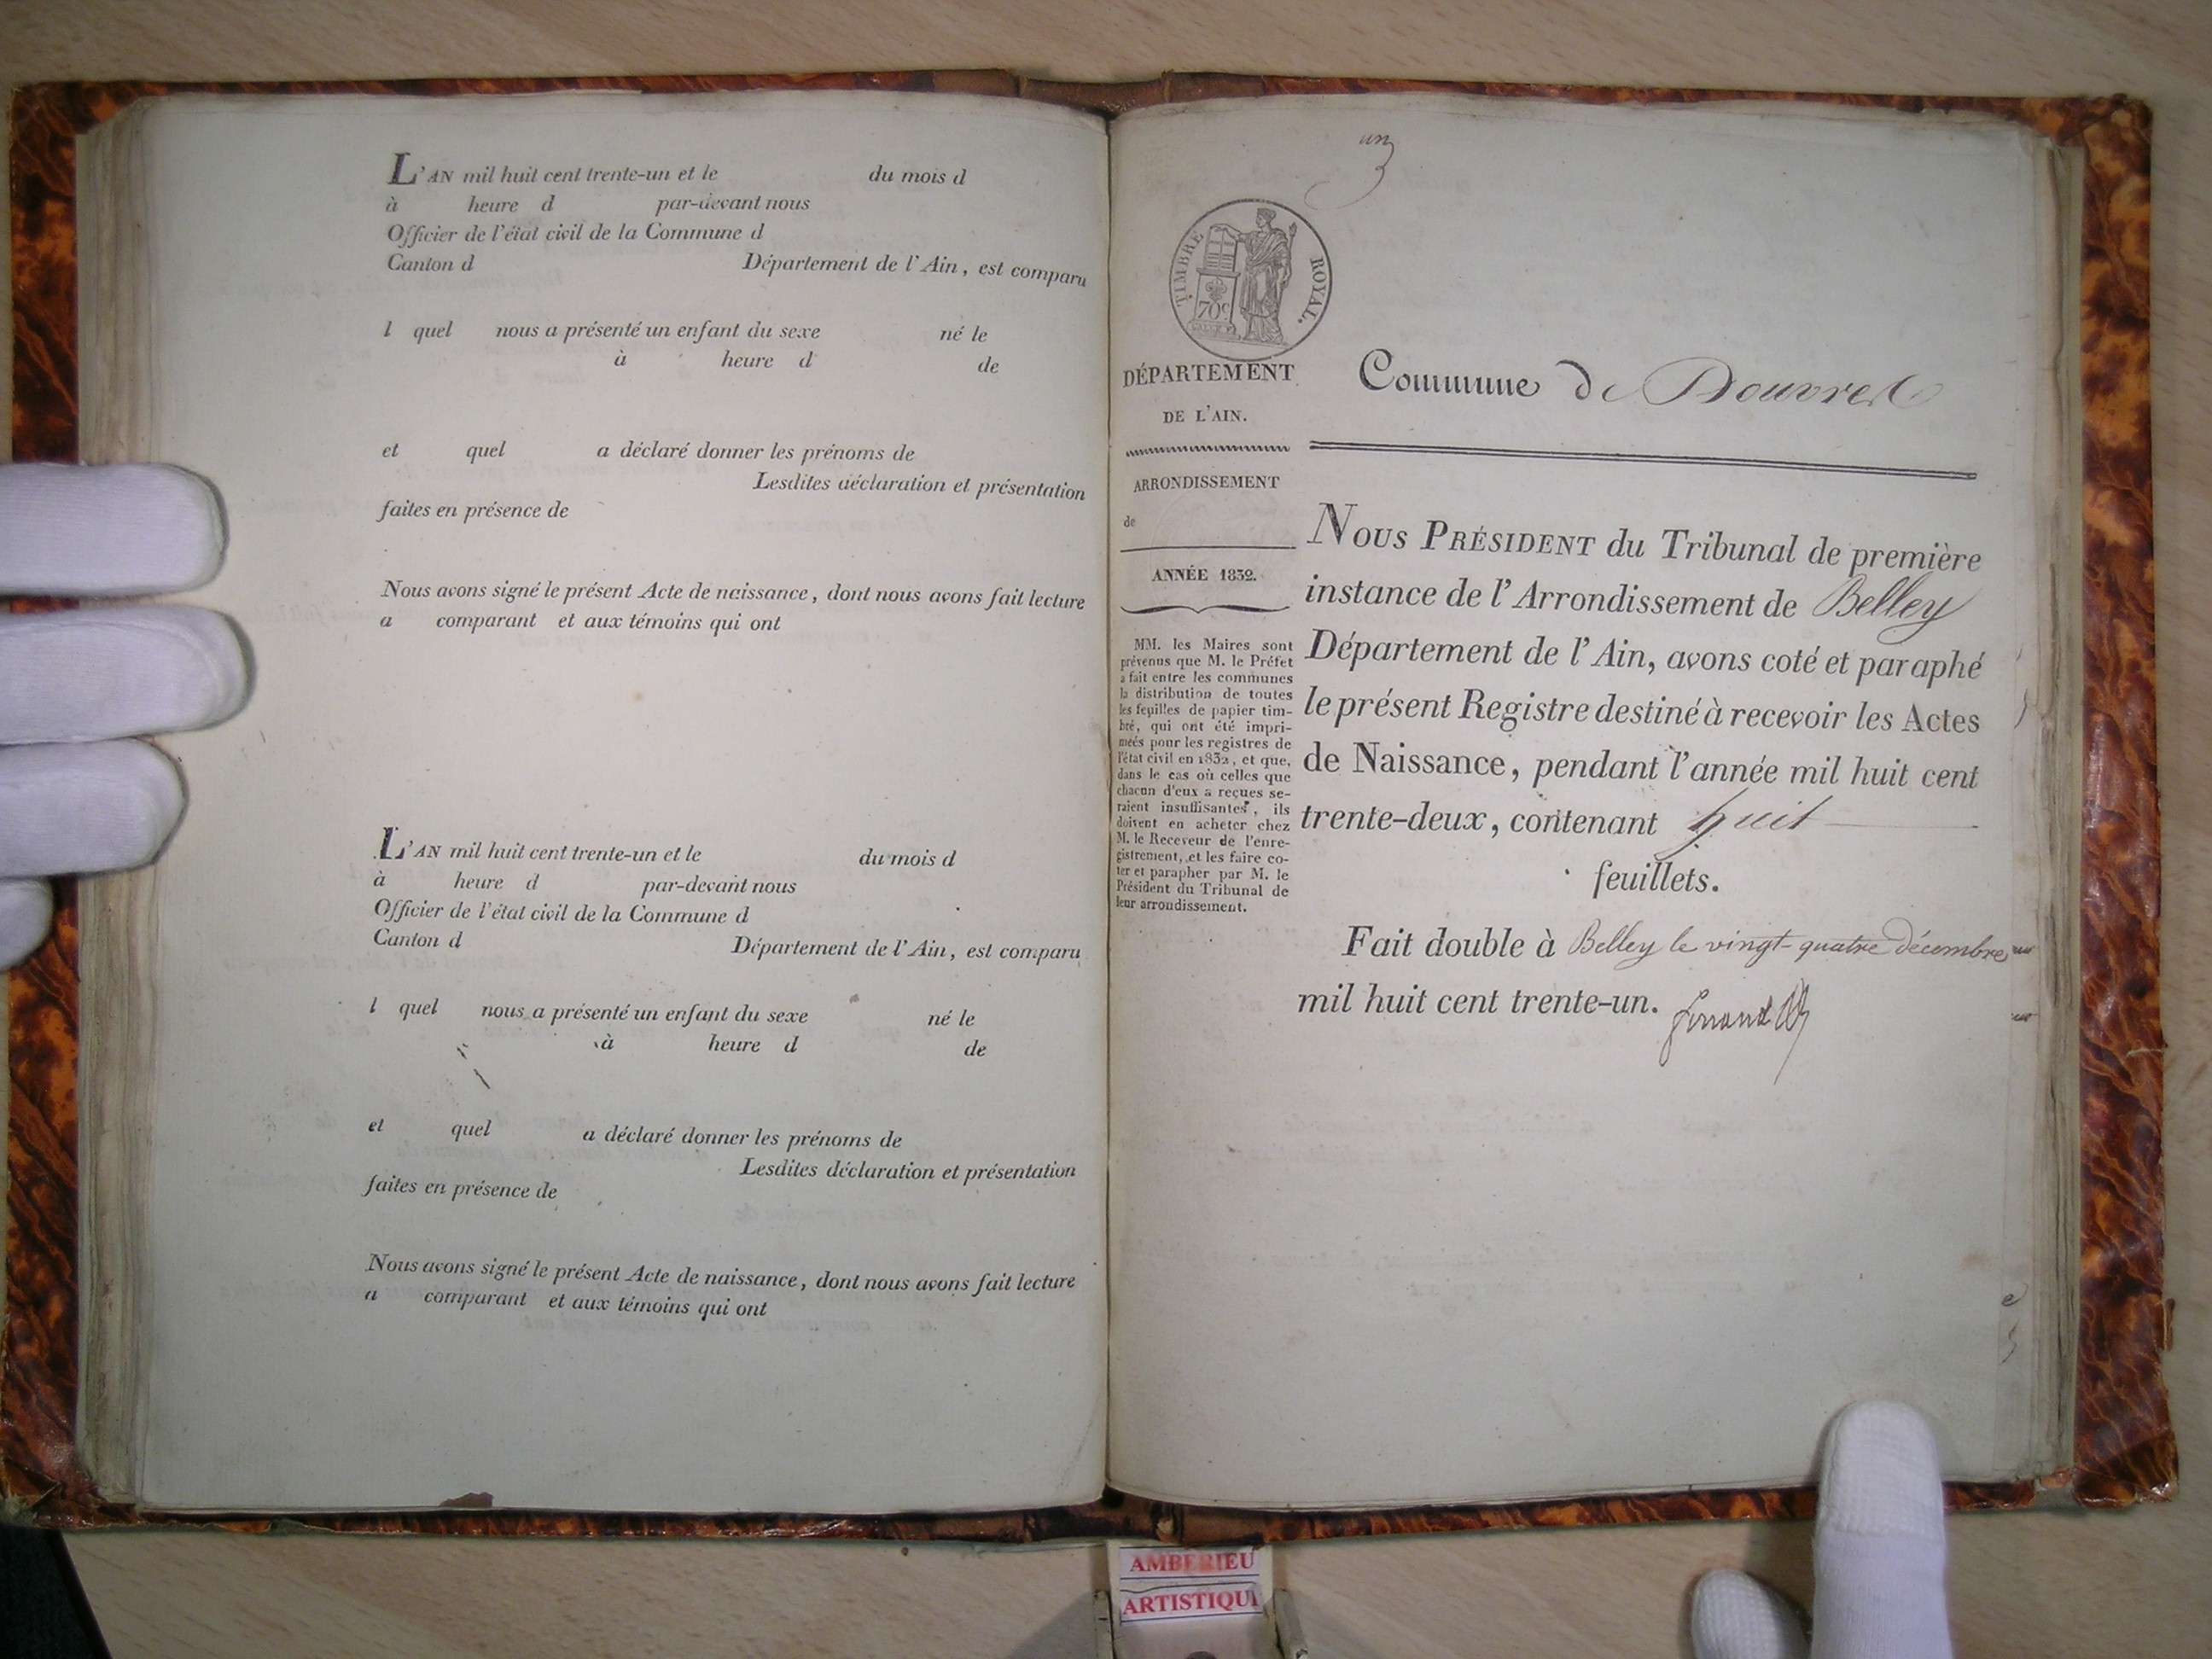 L'AN mil huit cent trente-un et le du mois d
à heure d par-devant nous
Officier de l'état civil de la Commune d
Canton d Département de l'Ain, est comparu
l quel nous a présenté un enfant du sexe né le
à heure d de
et quel a déclaré donner les prénoms de
Lesdites déclaration et présentation
faites en présence de
Nous avons signé le présent Acte de naissance, dont nous avons fait lecture
a comparant et aux témoins qui ont
L'AN mil huit cent trente-un et le du mois d
à heure d par-devant nous
Officier de l'état civil de la Commune d
Canton d Département de l'Ain, est comparu
l quel nous a présenté un enfant du sexe né le
à heure d de
et quel a déclaré donner les prénoms de
Lesdites déclaration et présentation
faites en présence de
Nous avons signé le présent Acte de naissance, dont nous avons fait lecture
a comparant et aux témoins qui ont
un
TIMBRE ROYAL.
70c
DÉPARTEMENT
DE L'AIN.
ARRONDISSEMENT
de
ANNÉE 1832.
MM. les Maires sont
prévenus que M. le Préfet
a fait entre les communes
la distribution de toutes
les feuilles de papier tim-
bré, qui ont été impri-
mées pour les registres de
l'état civil en 1832, et que,
dans le cas où celles que
chacun d'eux a reçues se-
raient insuffisantes, ils
doivent en acheter chez
M. le Receveur de l'enre-
gistrement, et les faire co-
ter et parapher par M. le
Président du Tribunal de
leur arrondissement.
Commune de Douvres
Nous PRÉSIDENT du Tribunal de première
instance de l'Arrondissement de Belley
Département de l'Ain, avons coté et paraphé
le présent Registre destiné à recevoir les Actes
de Naissance, pendant l'année mil huit cent
trente-deux, contenant huit
feuillets.
Fait double à Belley le vingt-quatre décembre
mil huit cent trente-un.
AMBERIEU
ARTISTIQU